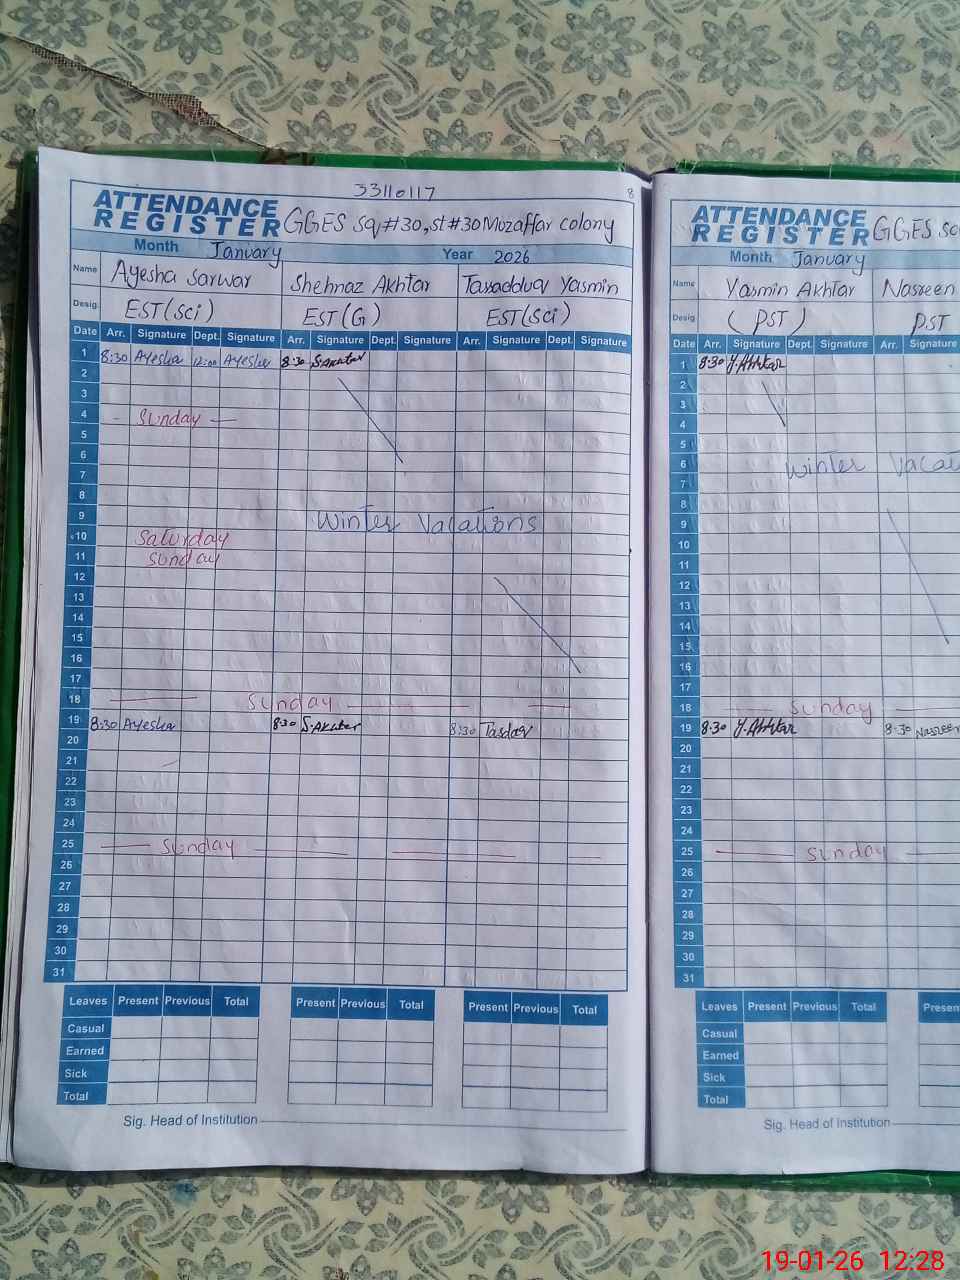 33110117
8
ATTENDANCE REGISTER GGES Sq#130, st#30 Muzaffar colony
Month January Year 2026
Name Ayesha Sarwar Shehnaz Akhtar Tassadduq Yasmin
Desig. EST(Sci) EST(G) EST(Sci)
Date Arr. Signature Dept. Signature Arr. Signature Dept. Signature Arr. Signature Dept. Signature
1 8:30 Ayesha 12:00 Ayesha 8:30 S.Akhtar
2
3
4 Sunday
5
6
7
8
9 Winter Vacations
10 Saturday
11 Sunday
12
13
14
15
16
17
18 Sunday
19 8:30 Ayesha 8:30 S.Akhtar 8:30 Tasdaq
20
21
22
23
24
25 Sunday
26
27
28
29
30
31
Leaves Present Previous Total Present Previous Total Present Previous Total
Casual
Earned
Sick
Total
Sig. Head of Institution
ATTENDANCE REGISTER GGES
Month January
Name Yasmin Akhtar Nasreen
Desig (PST) PST
Date Arr. Signature Dept. Signature Arr. Signature
1 8:30 Y.Akhtar
2
3
4
5
6 Winter Vacat
7
8
9
10
11
12
13
14
15
16
17
18 Sunday
19 8:30 Y.Akhtar 8:30 Nasreen
20
21
22
23
24
25 Sunday
26
27
28
29
30
31
Leaves Present Previous Total Presen
Casual
Earned
Sick
Total
Sig. Head of Institution
19-01-26 12:28